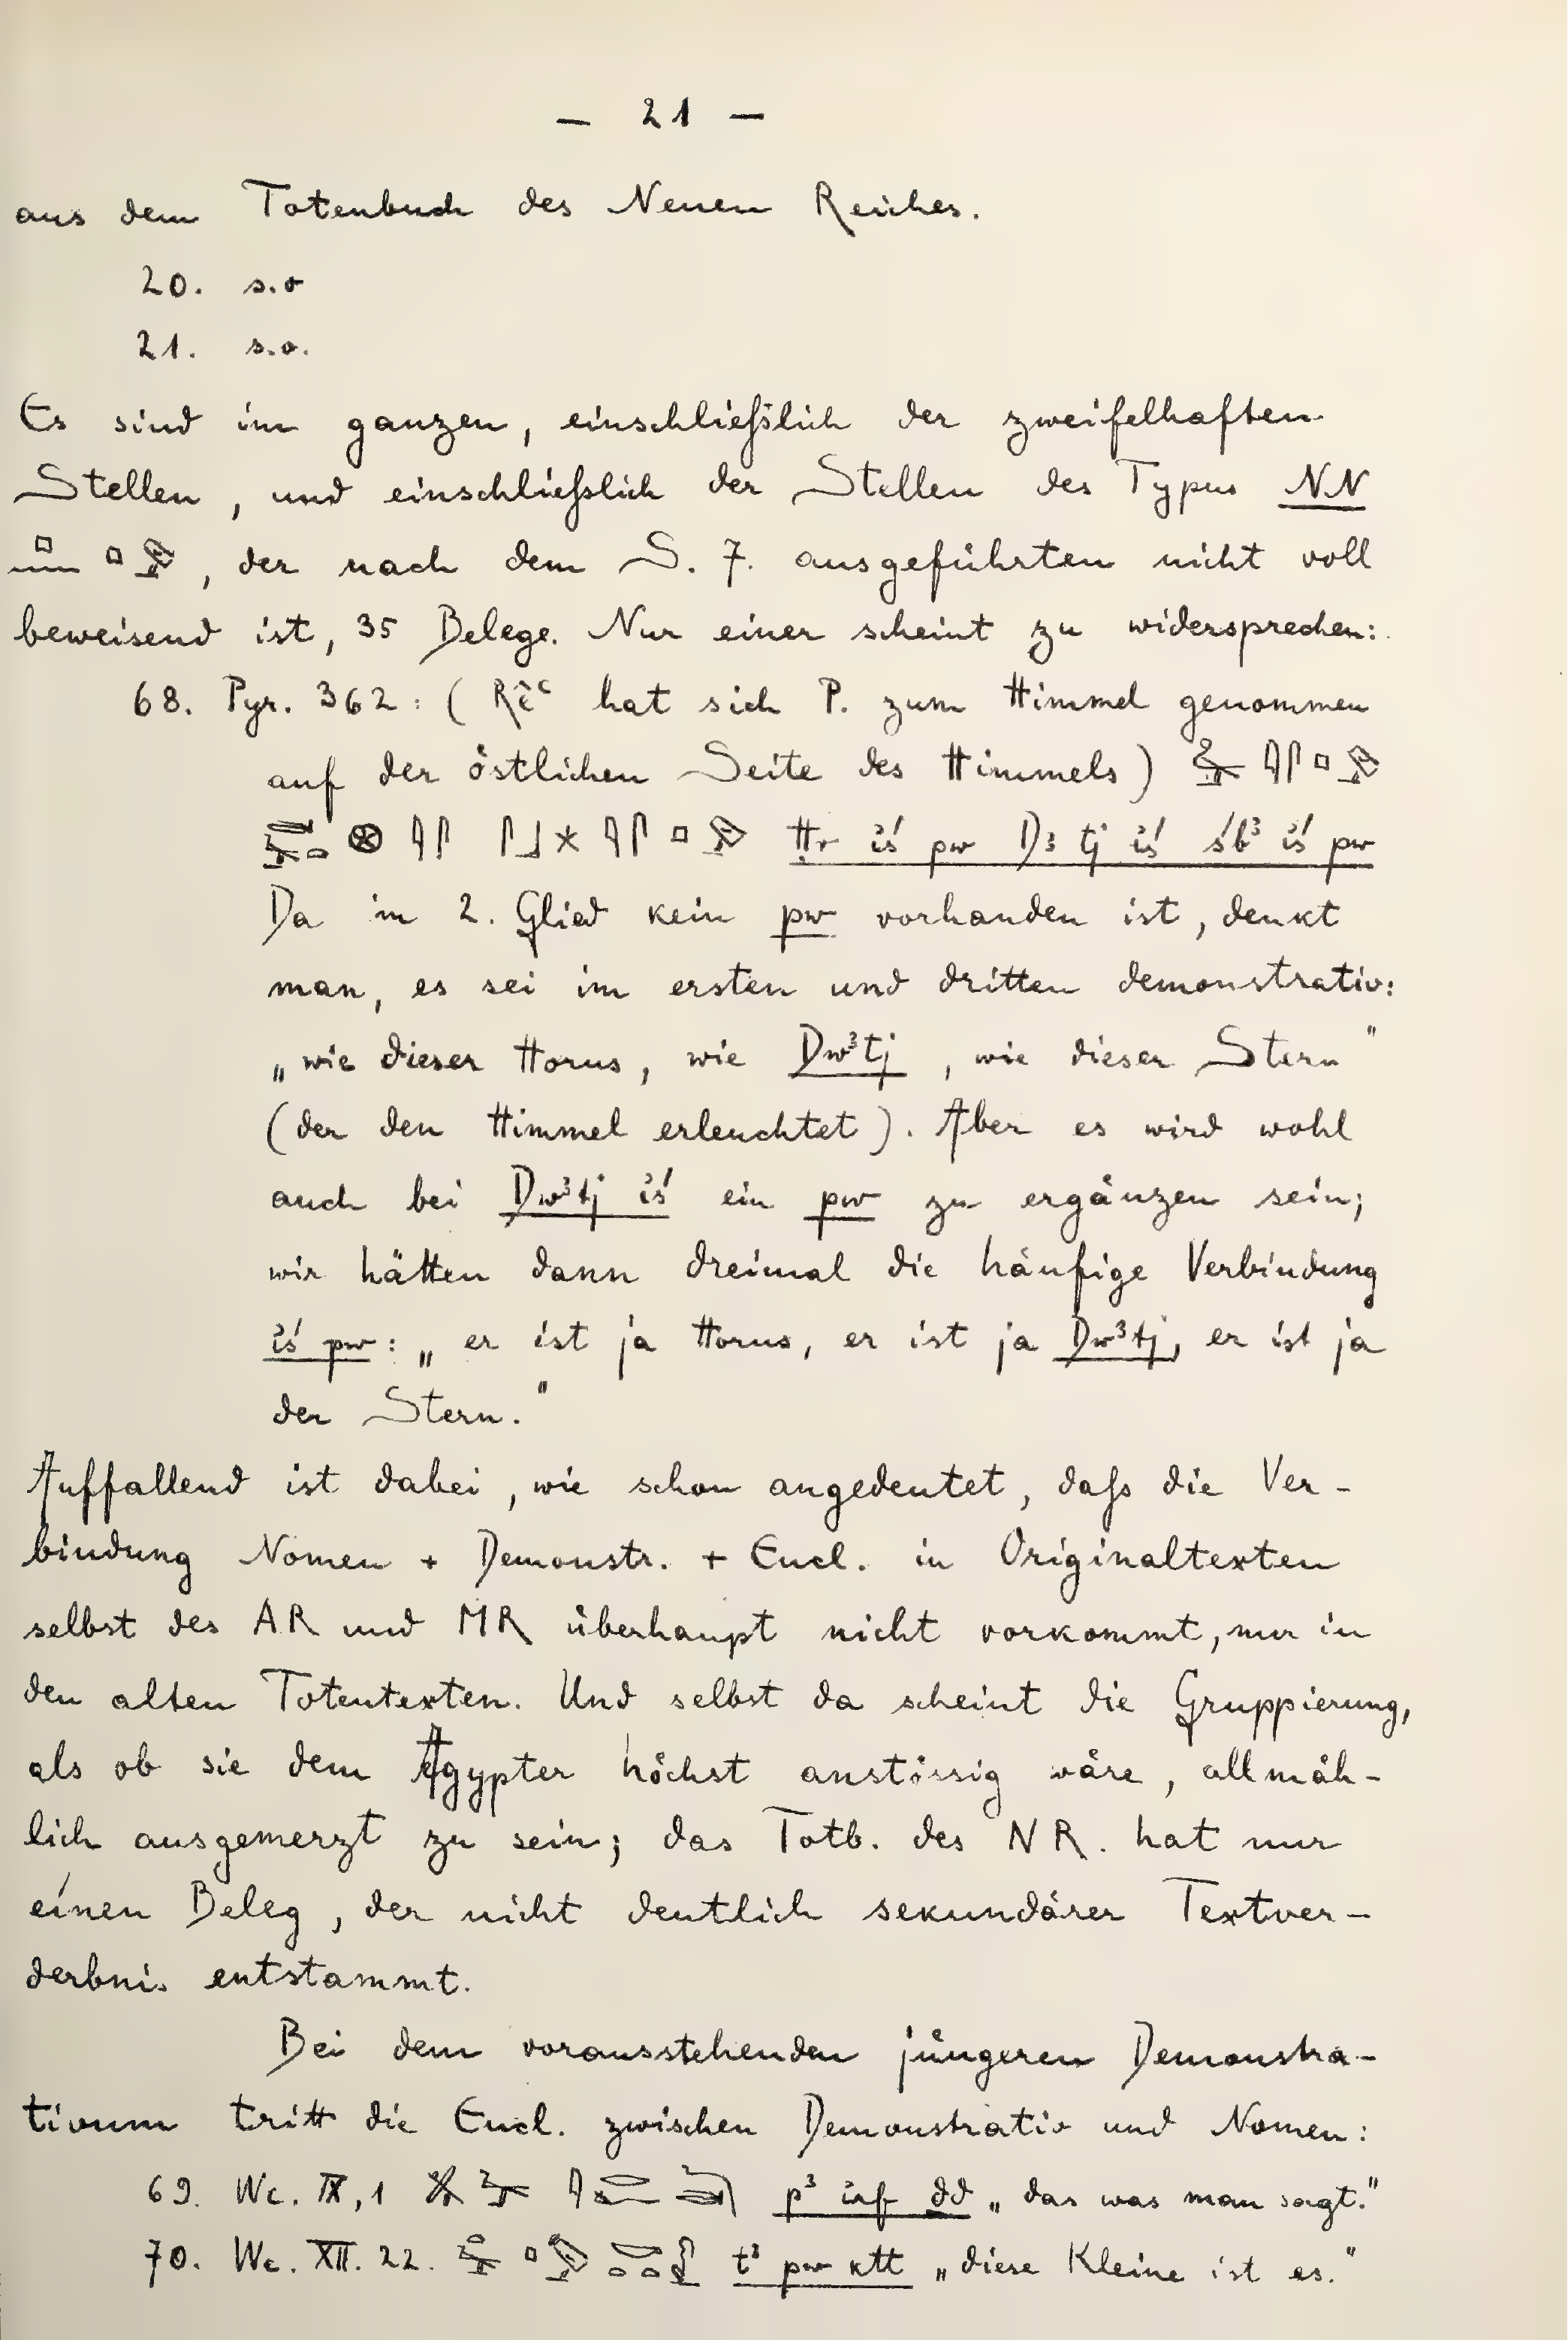 — 21 —
aus dem Totenbuch des Neuen Reiches.
20. s.o
21. s.o.
Es sind im ganzen, einschließlich der zweifelhaften
Stellen, und einschließlich der Stellen des Typus NN
, der nach dem S. 7. ausgeführten nicht voll
beweisend ist, 35 Belege. Nur einer scheint zu widersprechen:
68. Pyr. 362: (Rēꜥ hat sich P. zum Himmel genommen
auf der östlichen Seite des Himmels)
Ḥr ꞽś pw Dꜣtj ꞽś śbꜣ ꞽś pw
Da im 2. Glied kein pw vorhanden ist, denkt
man, es sei im ersten und dritten demonstrativ:
„wie dieser Horus, wie Dwꜣtj, wie dieser Stern"
(der den Himmel erleuchtet). Aber es wird wohl
auch bei Dwꜣtj ꞽś ein pw zu ergänzen sein;
wir hätten dann dreimal die häufige Verbindung
ꞽś pw: „er ist ja Horus, er ist ja Dwꜣtj, er ist ja
der Stern."
Auffallend ist dabei, wie schon angedeutet, daß die Ver-
bindung Nomen + Demonstr. + Encl. in Originaltexten
selbst des AR und MR überhaupt nicht vorkommt, nur in
den alten Totentexten. Und selbst da scheint die Gruppierung,
als ob sie dem Ägypter höchst anstössig wäre, allmäh-
lich ausgemerzt zu sein; das Totb. des NR. hat nur
eínen Beleg, der nicht deutlich sekundärer Textver-
derbnis entstammt.
Bei dem vorausstehenden jüngeren Demonstra-
tivum tritt die Encl. zwischen Demonstrativ und Nomen:
69. We. IX, 1 pꜣ ꞽrf ḏd „das was man sagt."
70. We. XII. 22. tꜣ pw ktt „diese Kleine ist es."